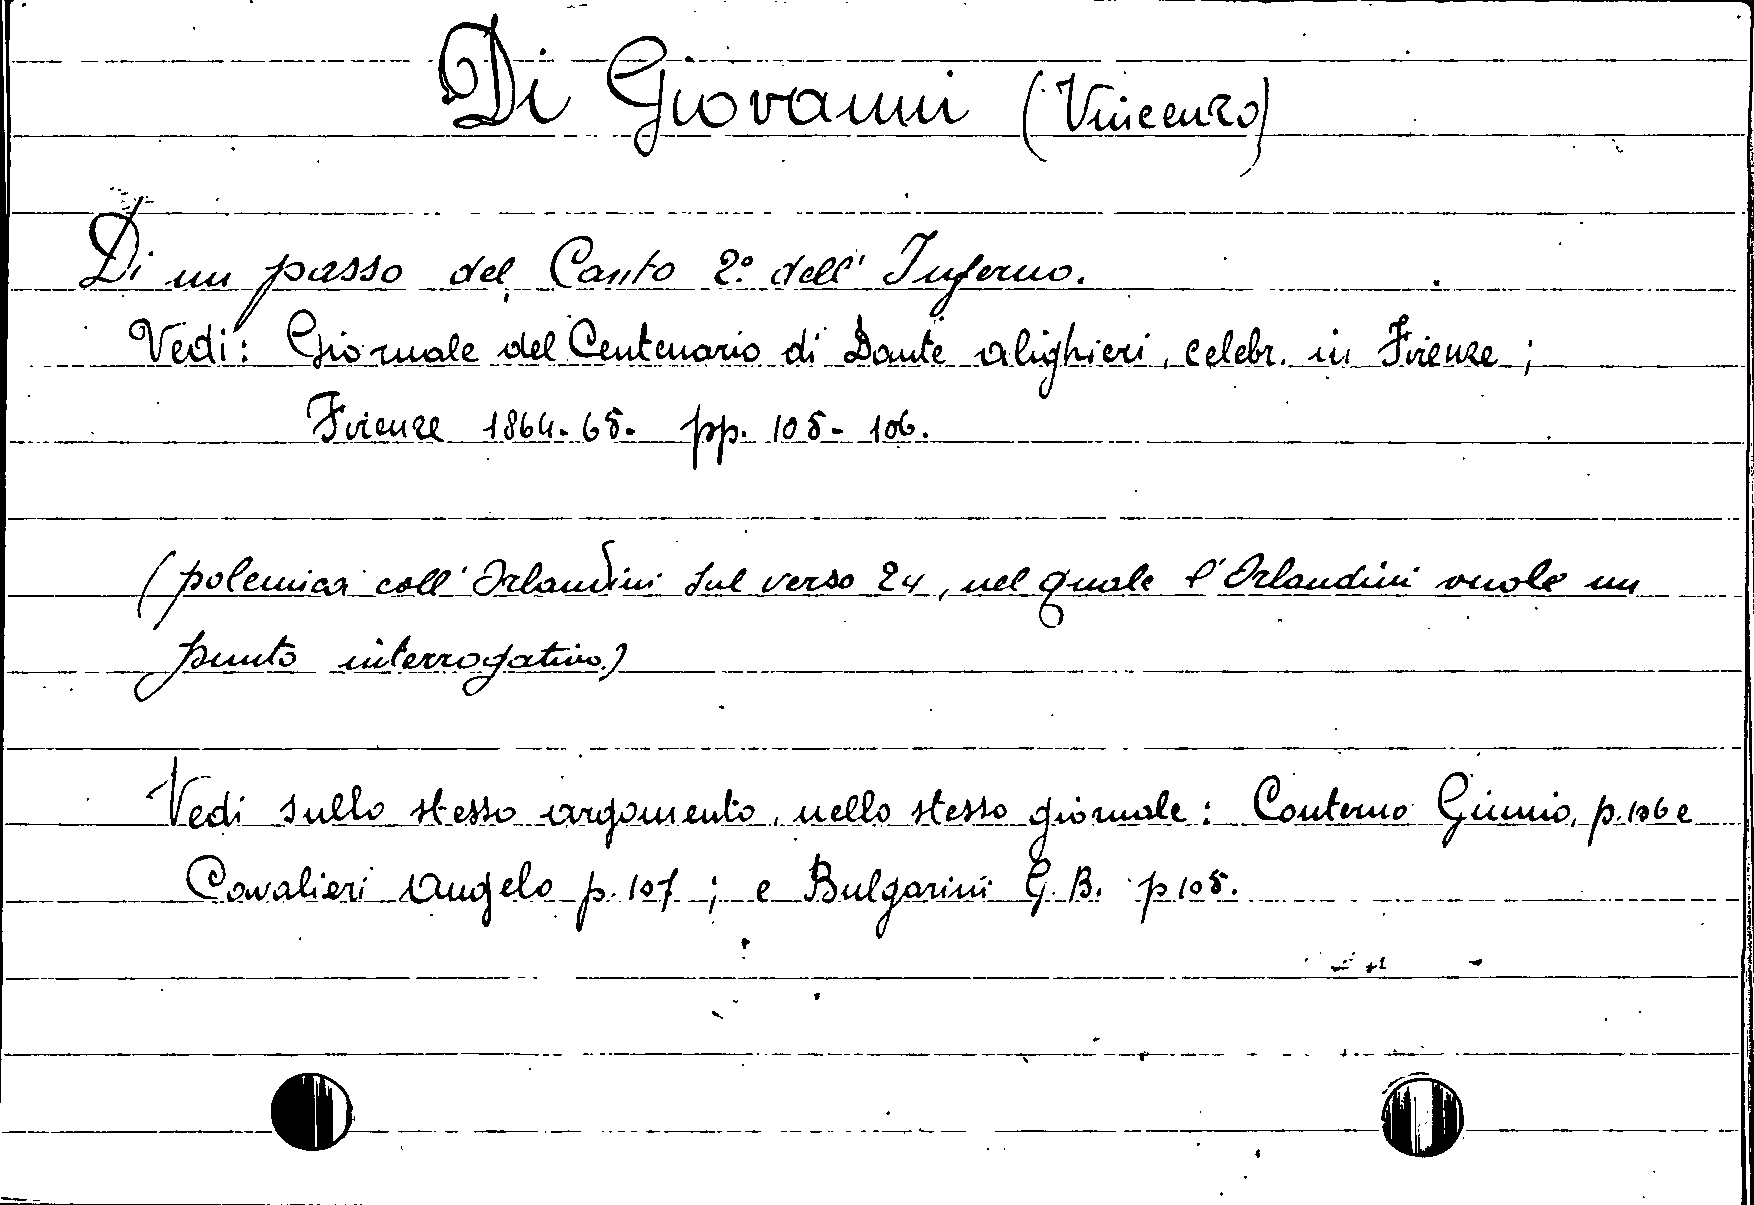 Di Giovanni (Vincenzo)
Di un passo del Canto 2º dell' Inferno.
Vedi: Giornale del Centenario di Dante Alighieri, celebr. in Firenze;
Firenze 1864-65- pp. 105-106.
(polemica coll' Orlandini sul verso 24, nel quale l'Orlandini vuole un
punto interrogativo.)
Vedi sullo stesso argomento, nello stesso giornale: Conterno Giunio, p. 106 e
Cavalieri Angelo p. 107; e Bulgarini G. B. p 105.